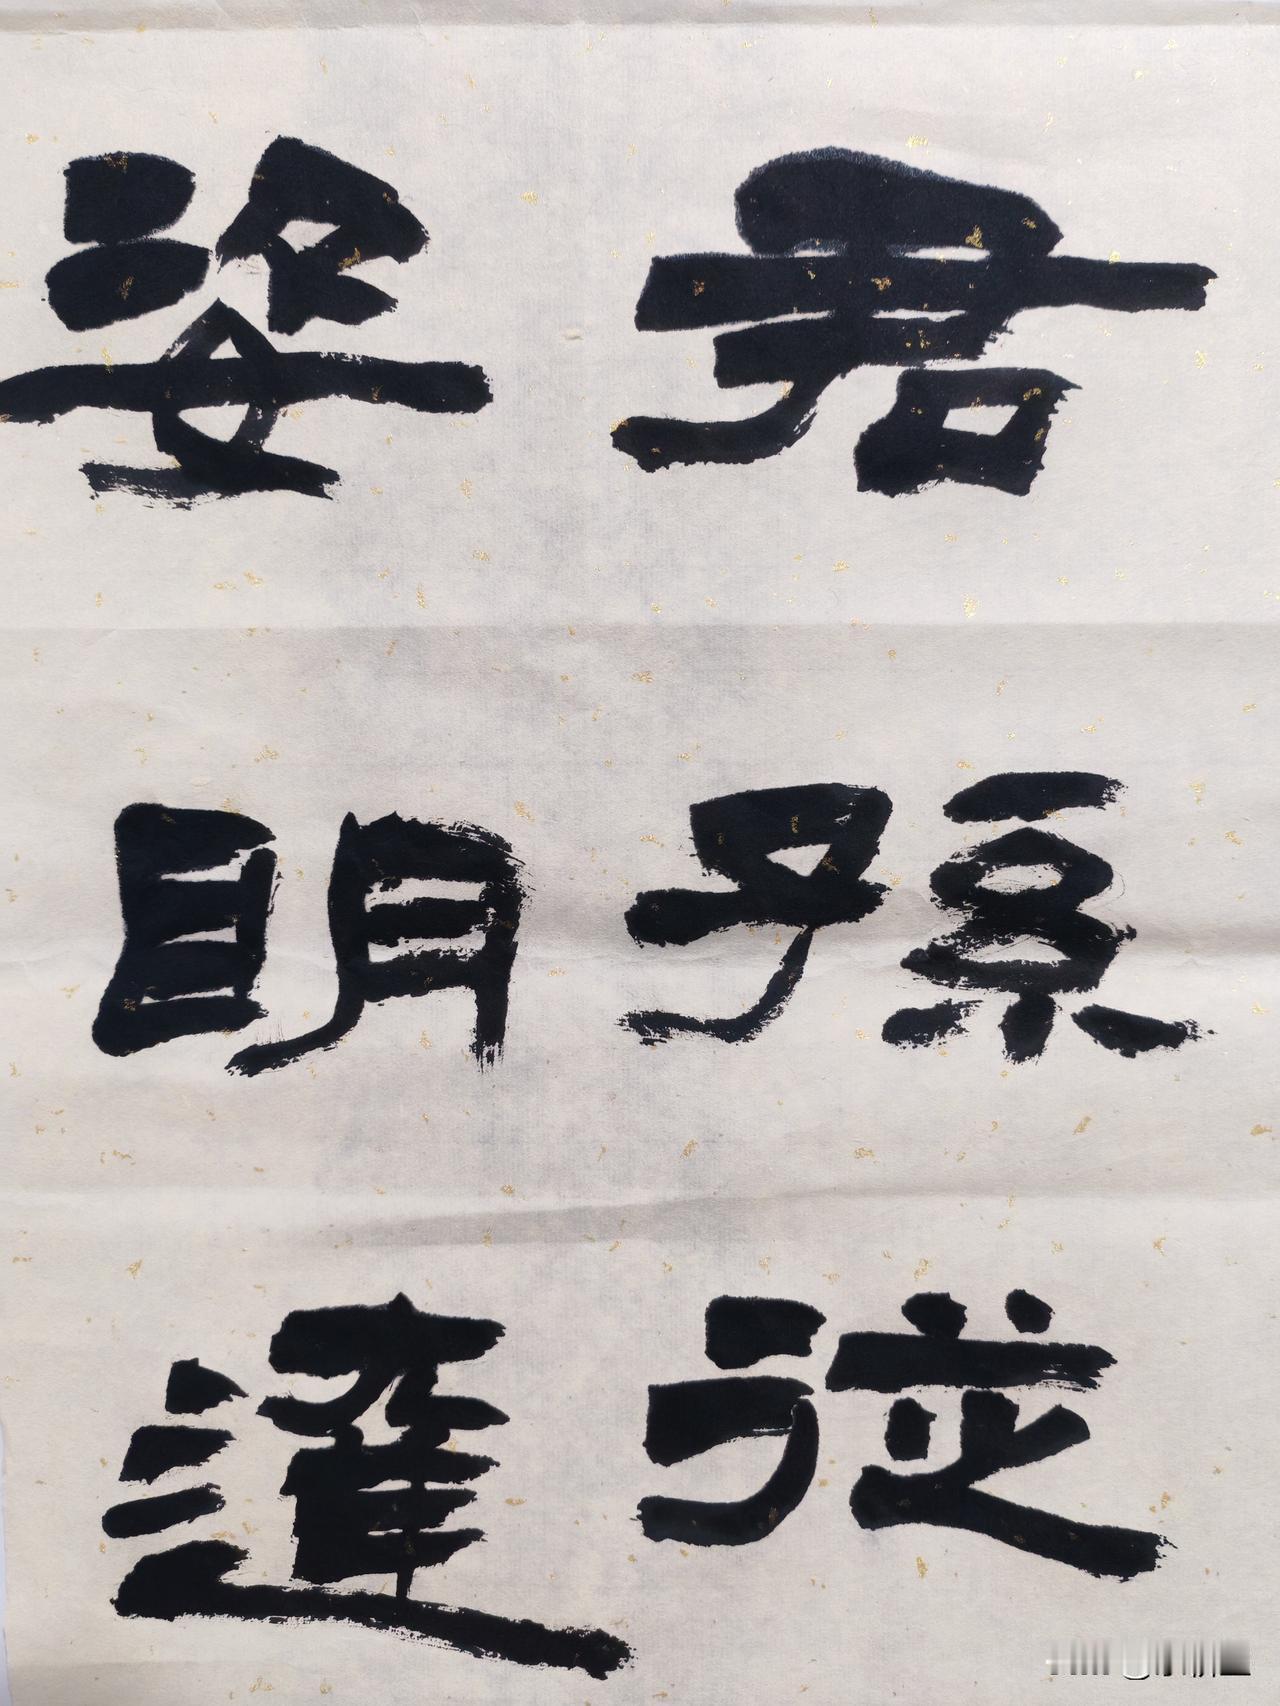 君孫從
姿明達